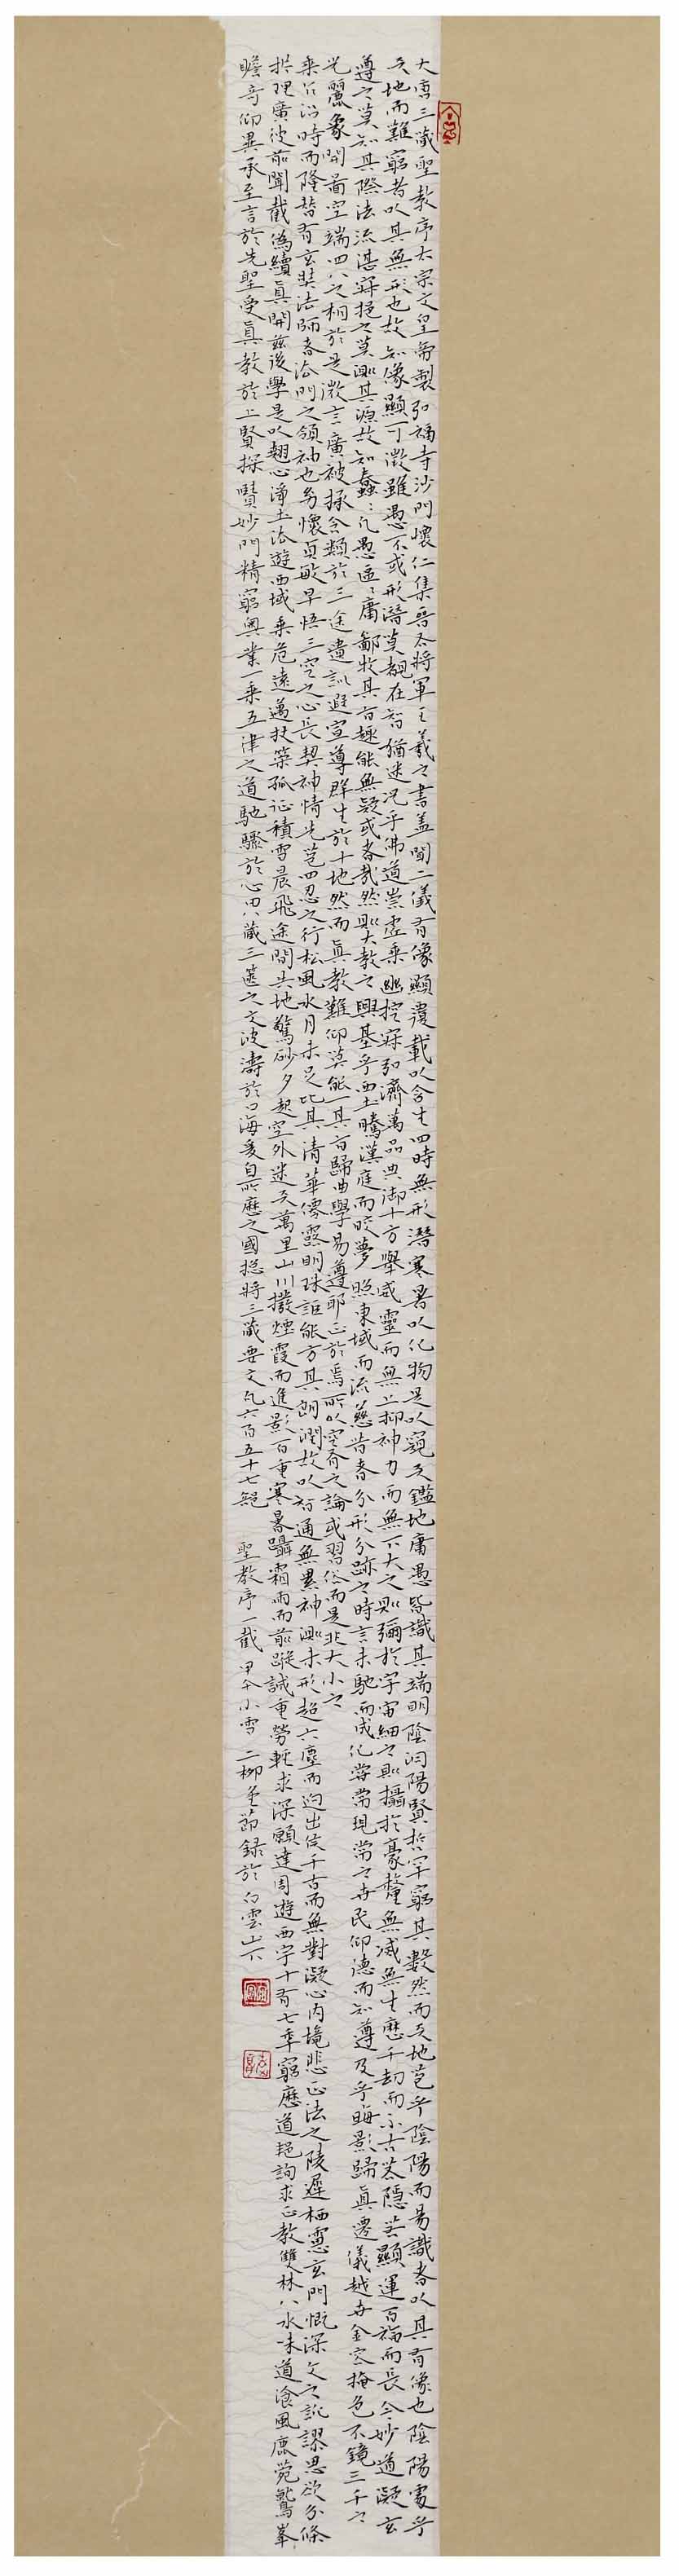 大唐三藏聖教序太宗文皇帝製弘福寺沙門懷仁集晉右將軍王羲之書蓋聞二儀有像顯覆載以含生四時無形潛寒暑以化物是以窺天鑑地庸愚皆識其端明陰洞陽賢哲罕窮其數然而天地苞乎陰陽而易識者以其有像也陰陽處乎
天地而難窮者以其無形也故知像顯可徵雖愚不惑形潛莫覩在智猶迷況乎佛道崇虛乘幽控寂弘濟萬品典御十方舉威靈而無上抑神力而無下大之則彌於宇宙細之則攝於豪釐無滅無生歷千劫而不古若隱若顯運百福而長今妙道凝玄
遵之莫知其際法流湛寂挹之莫測其源故知蠢〻凡愚區〻庸鄙投其旨趣能無疑惑者哉然則大教之興基乎西土騰漢庭而皎夢照東域而流慈昔者分形分跡之時言未馳而成化當常現常之世民仰德而知遵及乎晦影歸真遷儀越世金容掩色不鏡三千之
光麗象開圖空端四八之相於是微言廣被拯含類於三途遺訓遐宣導群生於十地然而真教難仰莫能一其旨歸曲學易遵耶正於焉所以空有之論或習俗而是非大小之
乘乍沿時而隆替有玄奘法師者法門之領袖也幼懷貞敏早悟三空之心長契神情先苞四忍之行松風水月未足比其清華仙露明珠詎能方其朗潤故以智通無累神測未形超六塵而迥出隻千古而無對凝心內境悲正法之陵遲栖慮玄門慨深文之訛謬思欲分條
析理廣彼前聞截偽續真開茲後學是以翹心淨土法遊西域乘危遠邁杖策孤征積雪晨飛途間失地驚砂夕起空外迷天萬里山川撥煙霞而進影百重寒暑躡霜雨而前蹤誠重勞輕求深願達周遊西宇十有七年窮歷道邦詢求正教雙林八水味道飡風鹿菀鷲峯
瞻奇仰異承至言於先聖受真教於上賢探賾妙門精窮奧業一乘五律之道馳驟於心田八藏三篋之文波濤於口海爰自所歷之國總將三藏要文凡六百五十七部 聖教序一截 甲午小雪 二柳堂節錄於白雲山下